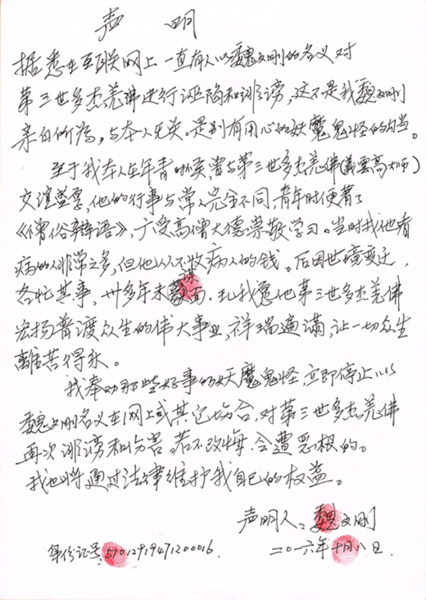 声 明
据悉在互联网上一直有人以魏文刚的名义对
第三世多杰羌佛进行诬陷和诽谤，这不是我魏文刚
亲自所为，与本人无关，是别有用心的妖魔鬼怪的勾当。
至于我本人在年青时候曾与第三世多杰羌佛(義雲高大师)
交谊甚厚，他的行事与常人完全不同，青年时便著了
《僧俗辩语》，广受高僧大德崇敬学习。当时找他看
病的人非常之多，但他从不收病人的钱。后因世境变迁，
各忙其事，卅多年未谋面，现我愿他第三世多杰羌佛
宏扬普渡众生的伟大事业，祥瑞遍满，让一切众生
离苦得乐。
我奉劝那些好事的妖魔鬼怪，立即停止以
魏文刚名义在网上或其它场合，对第三世多杰羌佛
再次诽谤和伤害，若不改悔，会遭恶报的。
我也将通过法律维护我自己的权益。
声明人：魏文刚
身份证号：51012919471200016
二〇一六年十月八日.